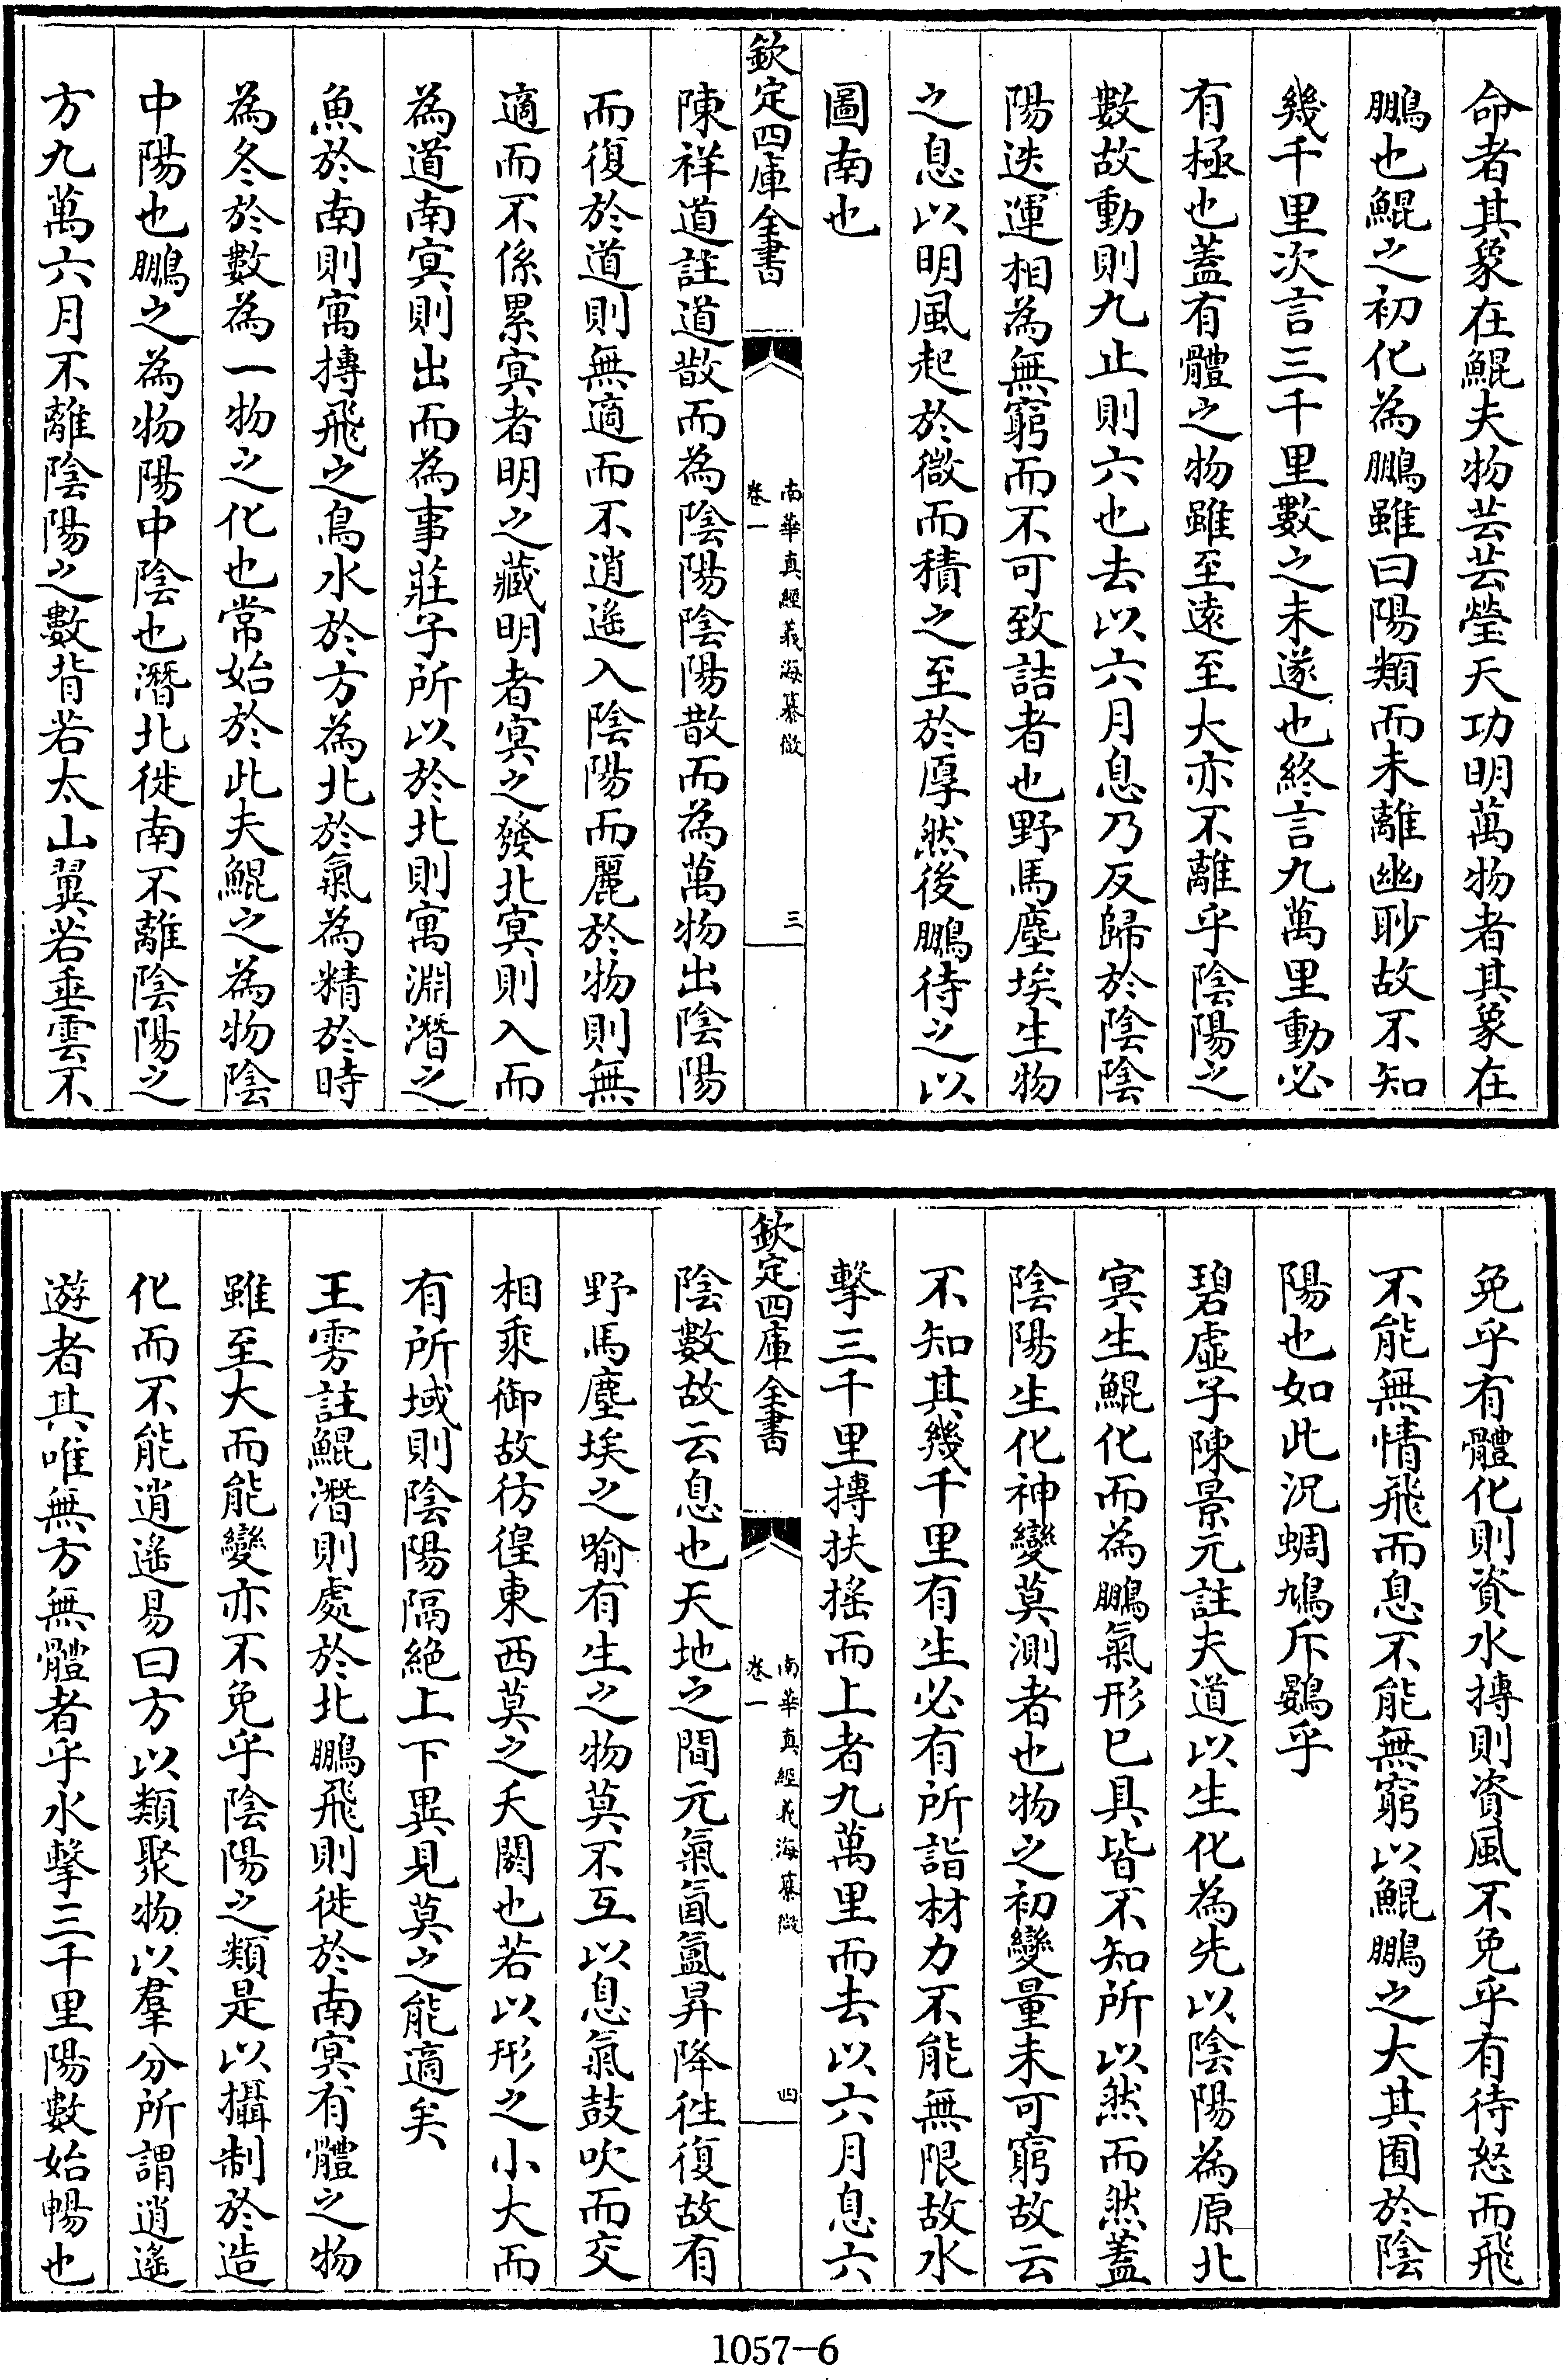 命者其象在鯤夫物芸芸瑩天功明萬物者其象在
鵬也鯤之初化為鵬雖曰陽類而未離幽眇故不知
幾千里次言三千里數之未遂也終言九萬里動必
有極也蓋有體之物雖至遠至大亦不離乎陰陽之
數故動則九止則六也去以六月息乃反歸於陰陰
陽迭運相為無窮而不可致詰者也野馬塵埃生物
之息以明風起於微而積之至於厚然後鵬待之以
圖南也
欽定四庫全書
南華真經義海纂微
卷一
三
陳祥道註道散而為陰陽陰陽散而為萬物出陰陽
而復於道則無適而不逍遙入陰陽而麗於物則無
適而不係累冥者明之藏明者冥之發北冥則入而
為道南冥則出而為事莊子所以於北則寓淵潛之
魚於南則寓摶飛之鳥水於方為北於氣為精於時
為冬於數為一物之化也常始於此夫鯤之為物陰
中陽也鵬之為物陽中陰也潛北徙南不離陰陽之
方九萬六月不離陰陽之數背若太山翼若垂雲不
免乎有體化則資水摶則資風不免乎有待怒而飛
不能無情飛而息不能無窮以鯤鵬之大其囿於陰
陽也如此況蜩鳩斥鷃乎
碧虛子陳景元註夫道以生化為先以陰陽為原北
冥生鯤化而為鵬氣形已具皆不知所以然而然蓋
陰陽生化神變莫測者也物之初變量未可窮故云
不知其幾千里有生必有所詣材力不能無限故水
擊三千里摶扶搖而上者九萬里而去以六月息六
欽定四庫全書
南華真經義海纂微
卷一
四
陰數故云息也天地之間元氣氤氳昇降往復故有
野馬塵埃之喻有生之物莫不互以息氣鼓吹而交
相乘御故彷徨東西莫之夭閼也若以形之小大而
有所域則陰陽隔絶上下異見莫之能適矣
王雱註鯤潛則處於北鵬飛則徙於南冥有體之物
雖至大而能變亦不免乎陰陽之類是以攝制於造
化而不能逍遙易曰方以類聚物以羣分所謂逍遙
遊者其唯無方無體者乎水擊三千里陽數始暢也
1057-6